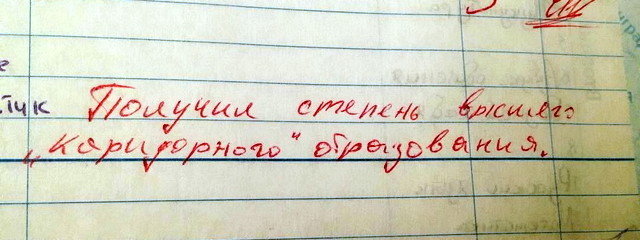 Получил степень высшего
„коридорного" образования.